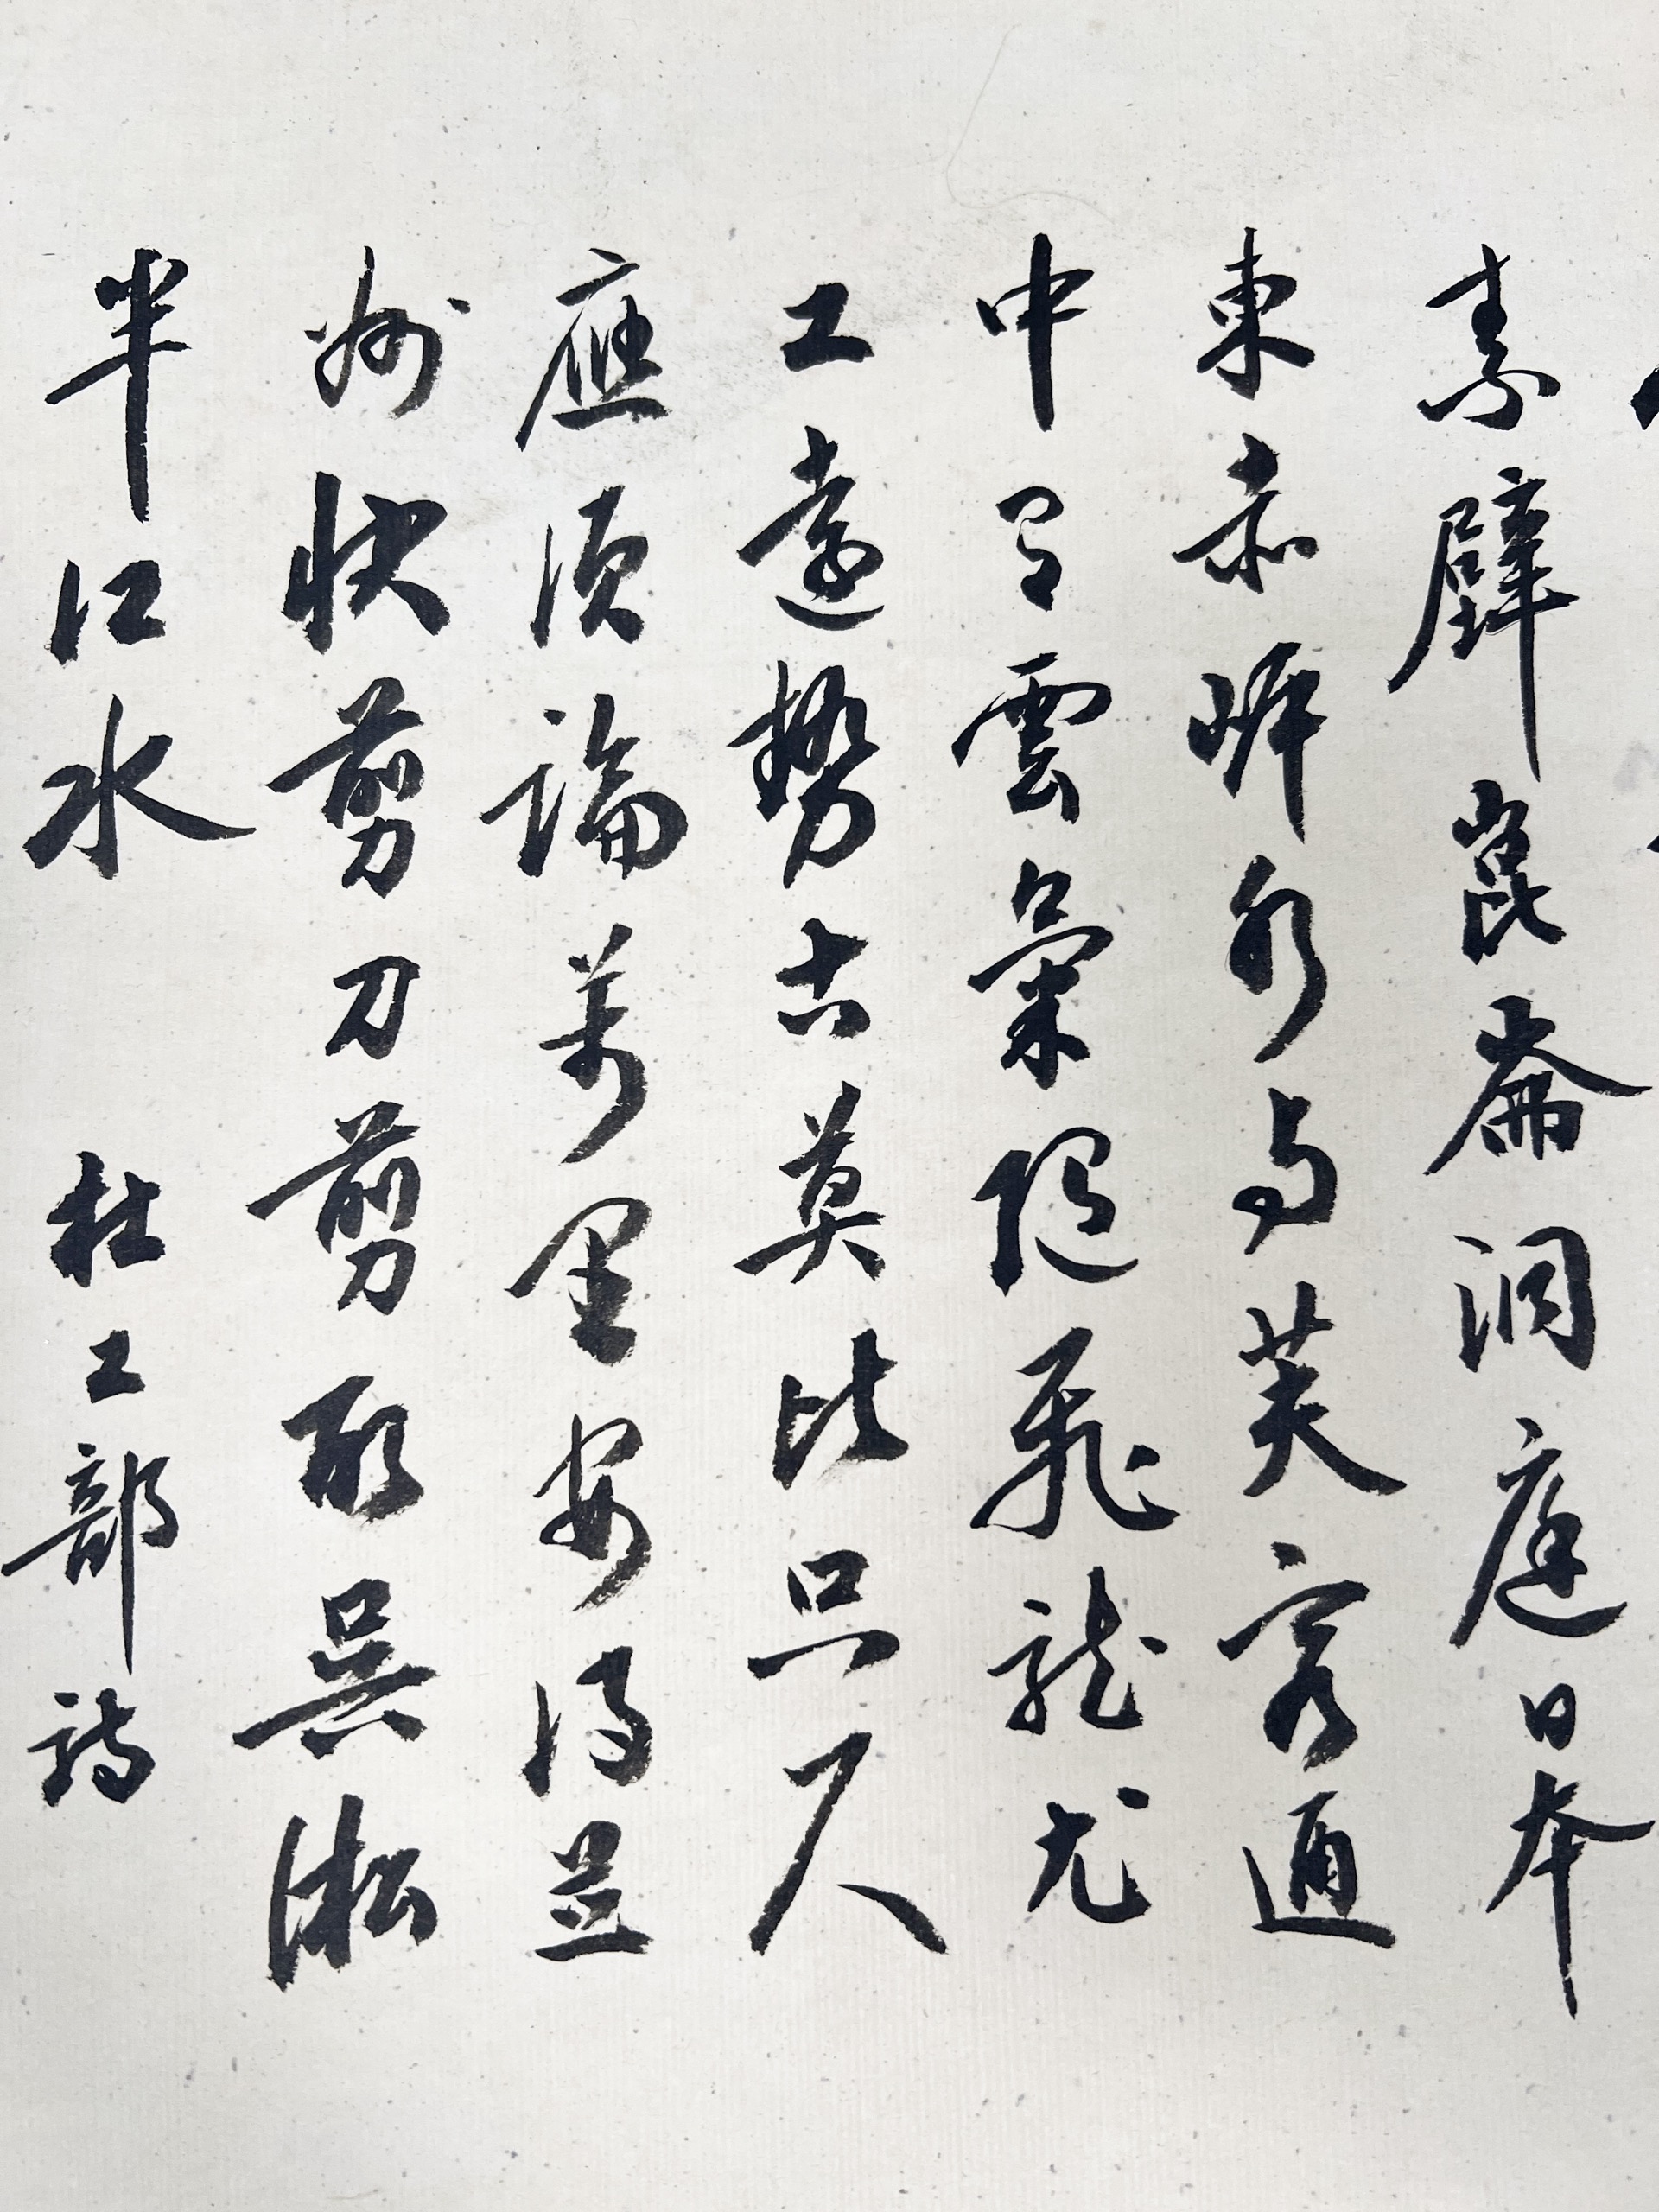 素壁崑崙洞庭日本
東赤岸水与芙容通
中有雲氣隨飛龍尤
工遠勢古莫比只尺
應須論萬里安得並
州快剪刀剪取吳淞
半江水 杜工部詩